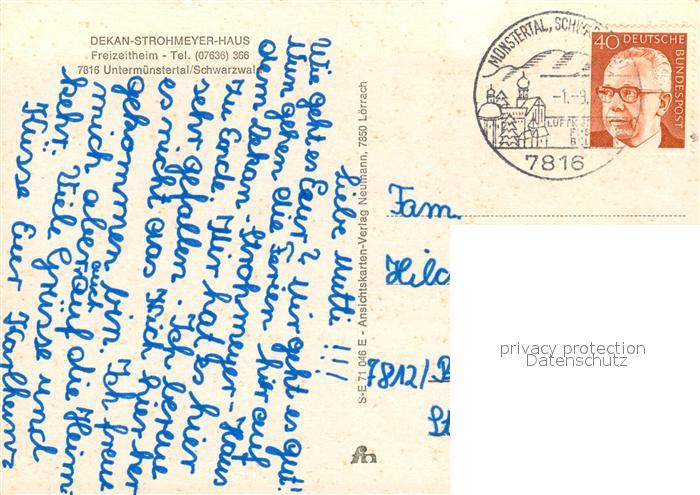 DEKAN-STROHMEYER-HAUS
Freizeitheim - Tel. (07636) 366
7816 Untermünstertal/Schwarzwald
Liebe Mutti!!!
Wie geht es Euch? Mir geht es gut!
Nun gehen die Ferien hier auf
dem Dekan-Strohmeyer-Haus
zu Ende. Mir hat es hier
sehr gefallen. Ich bereue
es nicht das ich hierher
gekommen bin. Ich freue
mich aber auch auf die Heim-
kehr. Viele Grüsse und
Küsse Euer Karlheinz
S-E 71 046 E - Ansichtskarten-Verlag Neumann, 7850 Lörrach
MÜNSTERTAL, SCHW
-1.-8.
LUFTK
7816
40 DEUTSCHE
BUNDESPOST
Fam.
7812/B
St
privacy protection
Datenschutz